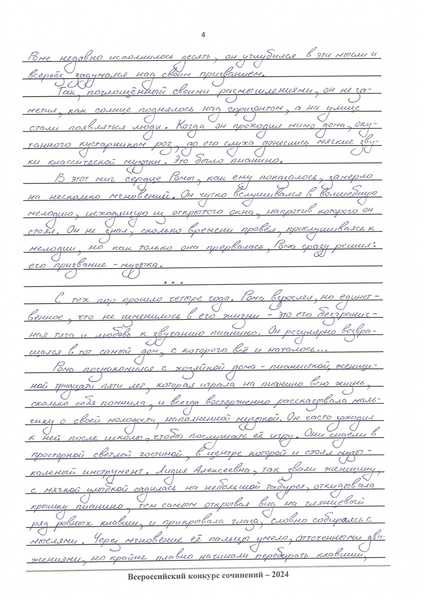 4
Роме недавно исполнилось десять, он углубился в эти мысли и
всерьёз задумался над своим призванием.
Так, поглощённой своими размышлениями, он не за-
метил, как солнце поднялось над горизонтом, а на улице
стали появляться люди. Когда он проходил мимо дома, оку-
танного кустарником роз, до его слуха донеслись мягкие зву-
ки классической музыки. Это было пианино.
В этот миг сердце Ромы, как ему показалось, замерло
на несколько мгновений. Он чутко вслушивался в волшебную
мелодию, исходящую из открытого окна, напротив которого он
стоял. Он не знал, сколько времени провёл, прислушиваясь к
мелодии, но как только она прервалась, Рома сразу решил:
его призвание - музыка.
* * *
С тех пор прошло четыре года. Рома взрослел, но единст-
венное, что не изменилось в его жизни - это его безгранич-
ная тяга и любовь к звучанию пианино. Он регулярно возвра-
щался в тот самый дом, с которого всё и началось...
Рома познакомился с хозяйкой дома - пианисткой, женщи-
ной тридцати пяти лет, которая играла на пианино всю жизнь,
сколько себя помнила, и всегда восторженно рассказывала маль-
чику о своей молодости, наполненной музыкой. Он часто заходил
к ней после школы, чтобы послушать её игру. Они сидели в
просторной светлой гостиной, в центре которой и стоял музы-
кальный инструмент. Лидия Алексеевна, так звали женщину,
с мягкой улыбкой садилась на небольшой табурет, откидывала
крышку пианино, тем самым открывая вид на глянцевый
ряд ровных клавиш, и прикрывала глаза, словно собираясь с
мыслями. Через мгновение её пальцы умело, отточенными дви-
жениями, но крайне плавно начинали перебирать клавиши,
Всероссийский конкурс сочинений – 2024